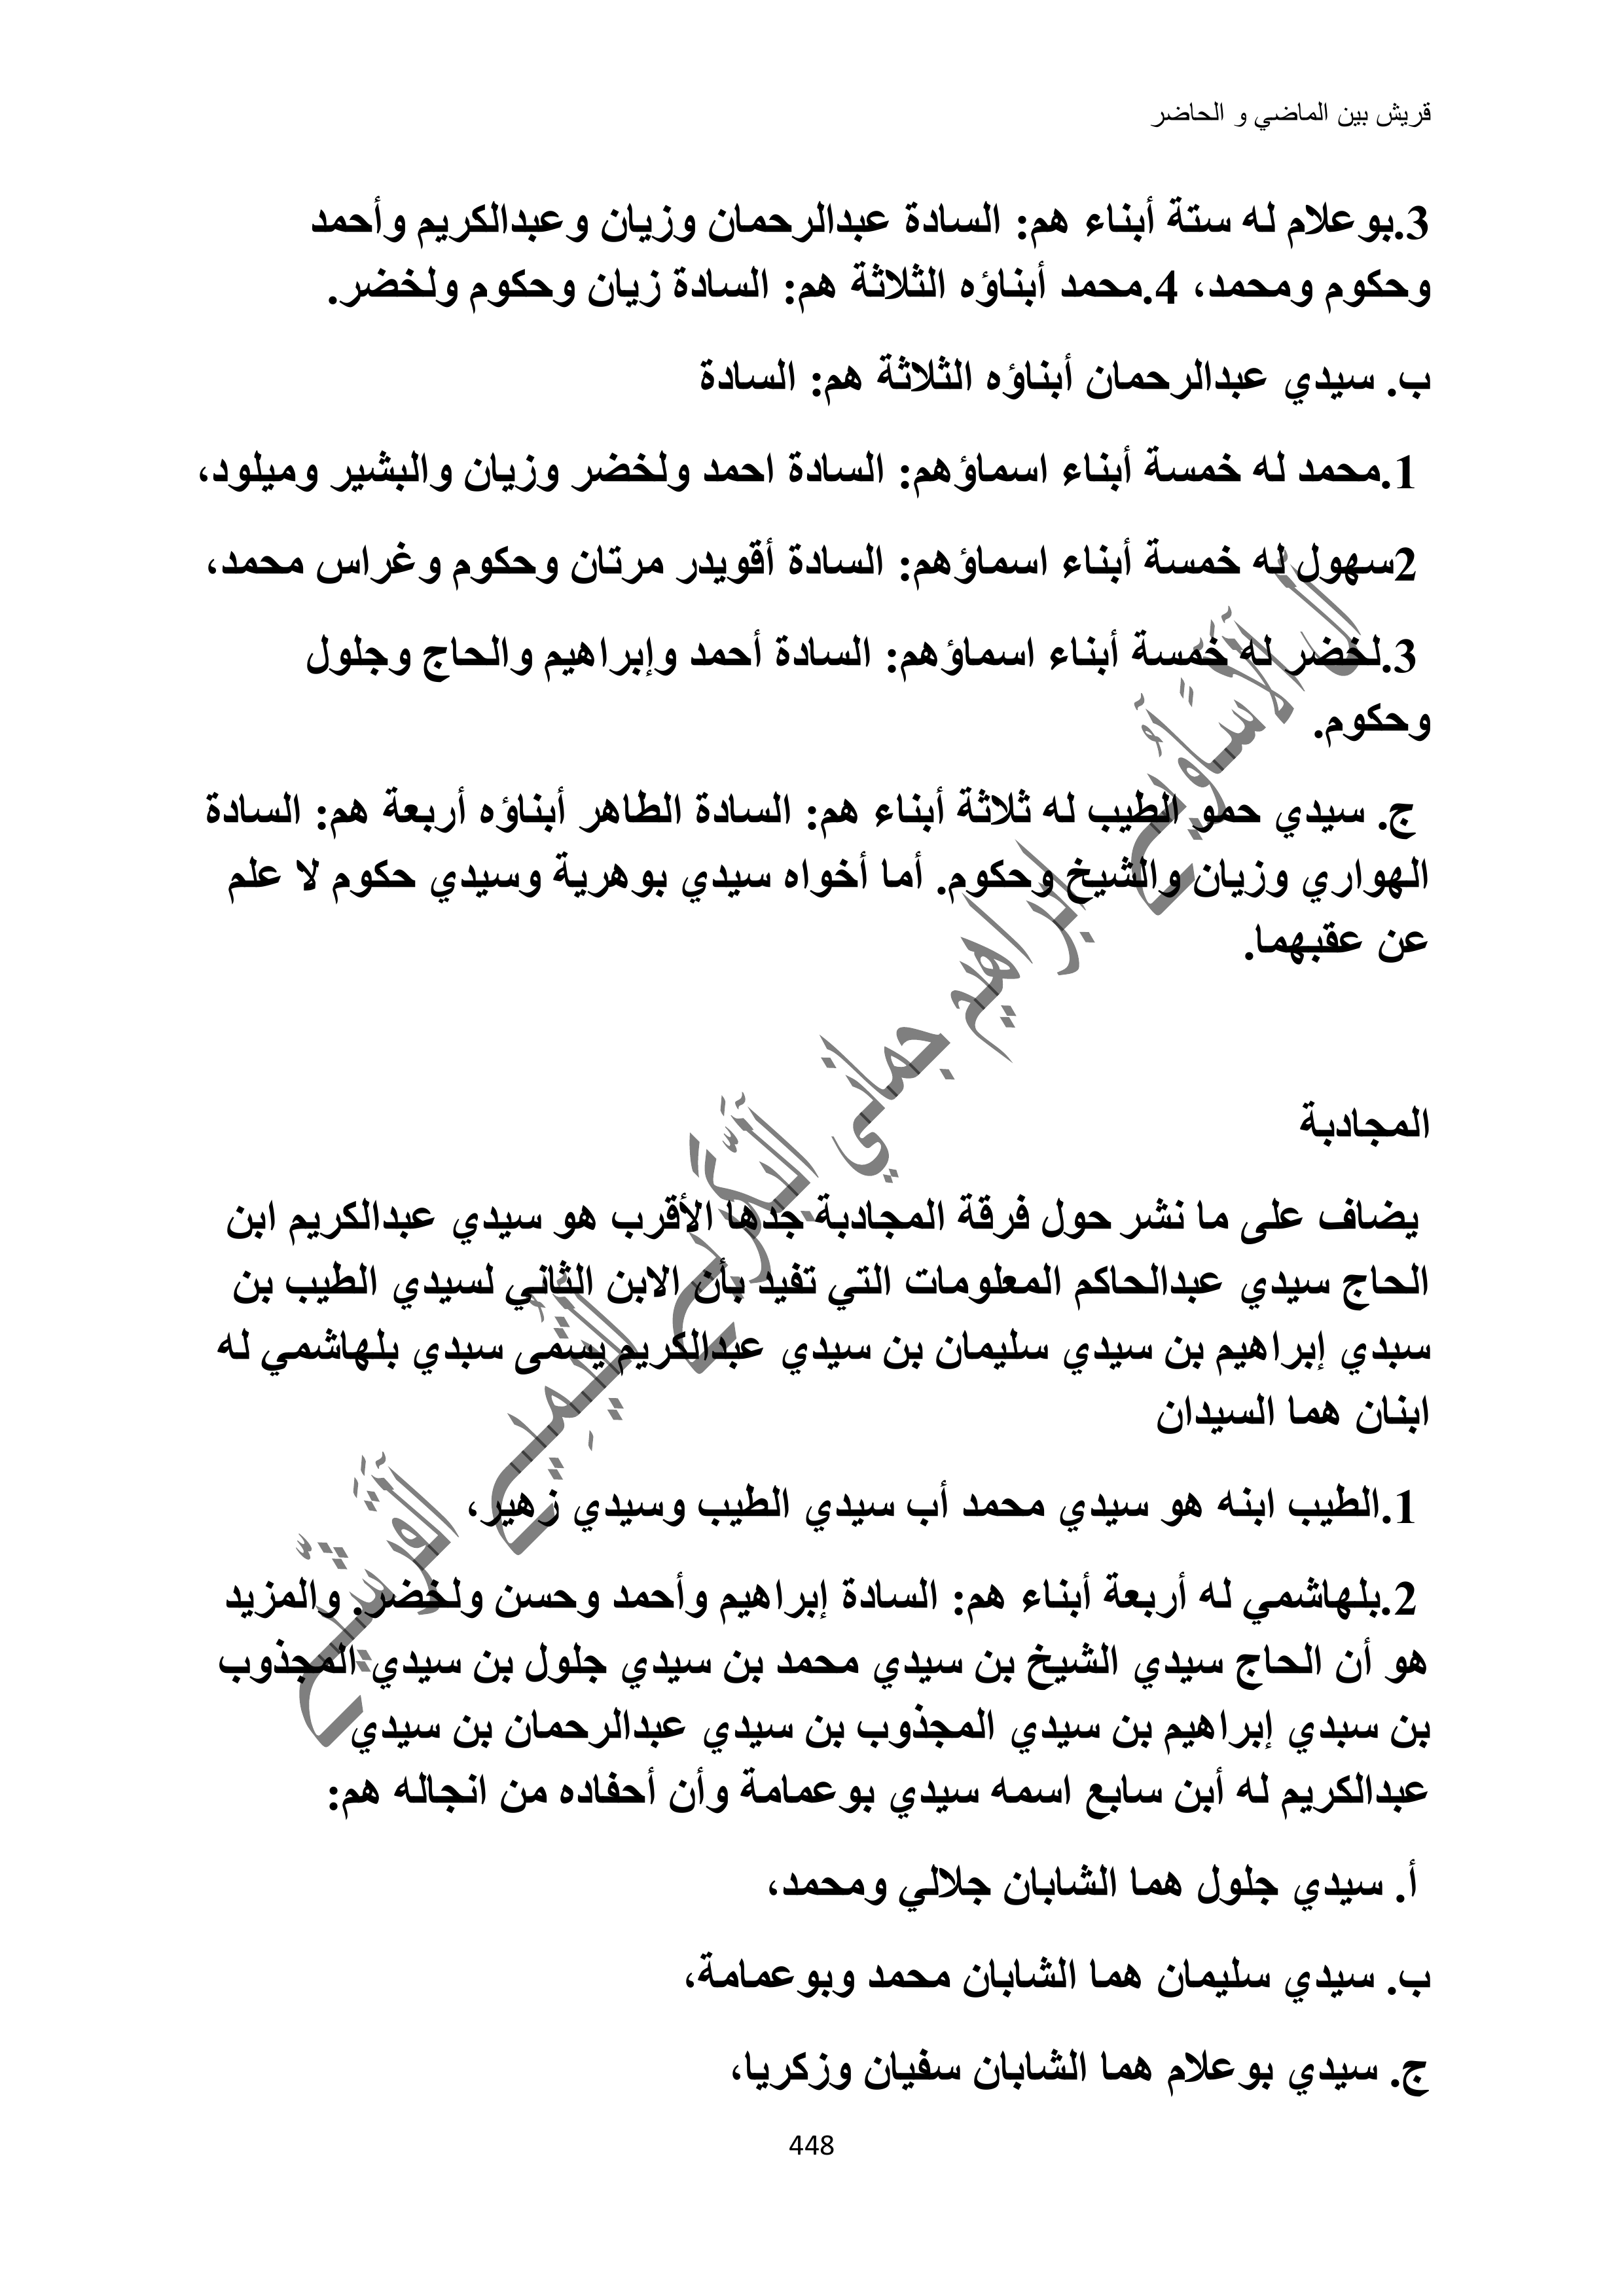 قريش بين الماضي و الحاضر
3.بوعلام له ستة أبناء هم: السادة عبدالرحمان وزيان وعبدالكريم وأحمد
وحكوم ومحمد، 4.محمد أبناؤه الثلاثة هم: السادة زيان وحكوم ولخضر.
ب. سيدي عبدالرحمان أبناؤه الثلاثة هم: السادة
1.محمد له خمسة أبناء اسماؤهم: السادة احمد ولخضر وزيان والبشير وميلود،
2سهول له خمسة أبناء اسماؤهم: السادة أقويدر مرتان وحكوم وغراس محمد،
3.لخضر له خمسة أبناء اسماؤهم: السادة أحمد وإبراهيم والحاج وجلول
وحكوم.
ج. سيدي حمو الطيب له ثلاثة أبناء هم: السادة الطاهر أبناؤه أربعة هم: السادة
الهواري وزيان والشيخ وحكوم. أما أخواه سيدي بوهرية وسيدي حكوم لا علم
عن عقبهما.
المجادبة
يضاف على ما نشر حول فرقة المجادبة جدها الأقرب هو سيدي عبدالكريم ابن
الحاج سيدي عبدالحاكم المعلومات التي تفيد بأن الابن الثاني لسيدي الطيب بن
سبدي إبراهيم بن سيدي سليمان بن سيدي عبدالكريم يسمى سبدي بلهاشمي له
ابنان هما السيدان
1.الطيب ابنه هو سيدي محمد أب سيدي الطيب وسيدي زهير،
2.بلهاشمي له أربعة أبناء هم: السادة إبراهيم وأحمد وحسن ولخضر. والمزيد
هو أن الحاج سيدي الشيخ بن سيدي محمد بن سيدي جلول بن سيدي المجذوب
بن سبدي إبراهيم بن سيدي المجذوب بن سيدي عبدالرحمان بن سيدي
عبدالكريم له أبن سابع اسمه سيدي بوعمامة وأن أحفاده من انجاله هم:
أ. سيدي جلول هما الشابان جلالي ومحمد،
ب. سيدي سليمان هما الشابان محمد وبوعمامة،
ج. سيدي بوعلام هما الشابان سفيان وزكريا،
448